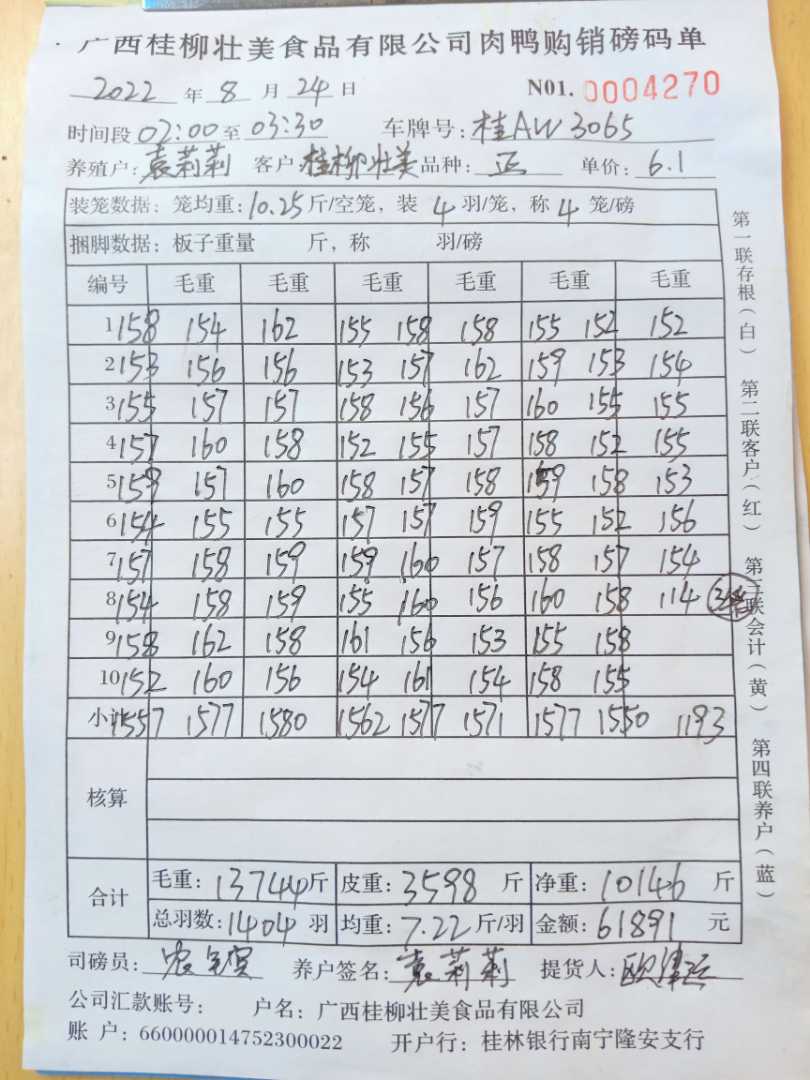 广西桂柳壮美食品有限公司肉鸭购销磅码单
2022 年 8 月 24 日 N01. 0004270
时间段 02:00 至 03:30 车牌号: 桂AW3065
养殖户: 袁莉莉 客户: 桂柳壮美 品种: 正 单价: 6.1
装笼数据: 笼均重: 10.25 斤/空笼, 装 4 羽/笼, 称 4 笼/磅
捆脚数据: 板子重量 斤, 称 羽/磅
编号 毛重 毛重 毛重 毛重 毛重 毛重
1 158 154 162 155 158 158 155 152 152
2 153 156 156 153 157 162 159 153 154
3 155 157 157 158 156 157 160 155 155
4 157 160 158 152 155 157 158 152 155
5 159 157 160 158 157 158 159 158 153
6 154 155 155 157 157 159 155 152 156
7 157 158 159 159 160 157 158 157 154
8 154 158 159 155 160 156 160 158 114
9 158 162 158 161 156 153 155 158
10 152 160 156 154 161 154 158 155
小计 1557 1577 1580 1562 1577 1571 1577 1550 1193
核算
合计
毛重: 13744 斤 皮重: 3598 斤 净重: 10146 斤
总羽数: 1404 羽 均重: 7.22 斤/羽 金额: 61891 元
司磅员: 养户签名: 袁莉莉 提货人:
公司汇款账号: 户名: 广西桂柳壮美食品有限公司
账 户: 660000014752300022 开户行: 桂林银行南宁隆安支行
第一联存根(白) 第二联客户(红) 第三联会计(黄) 第四联养户(蓝)